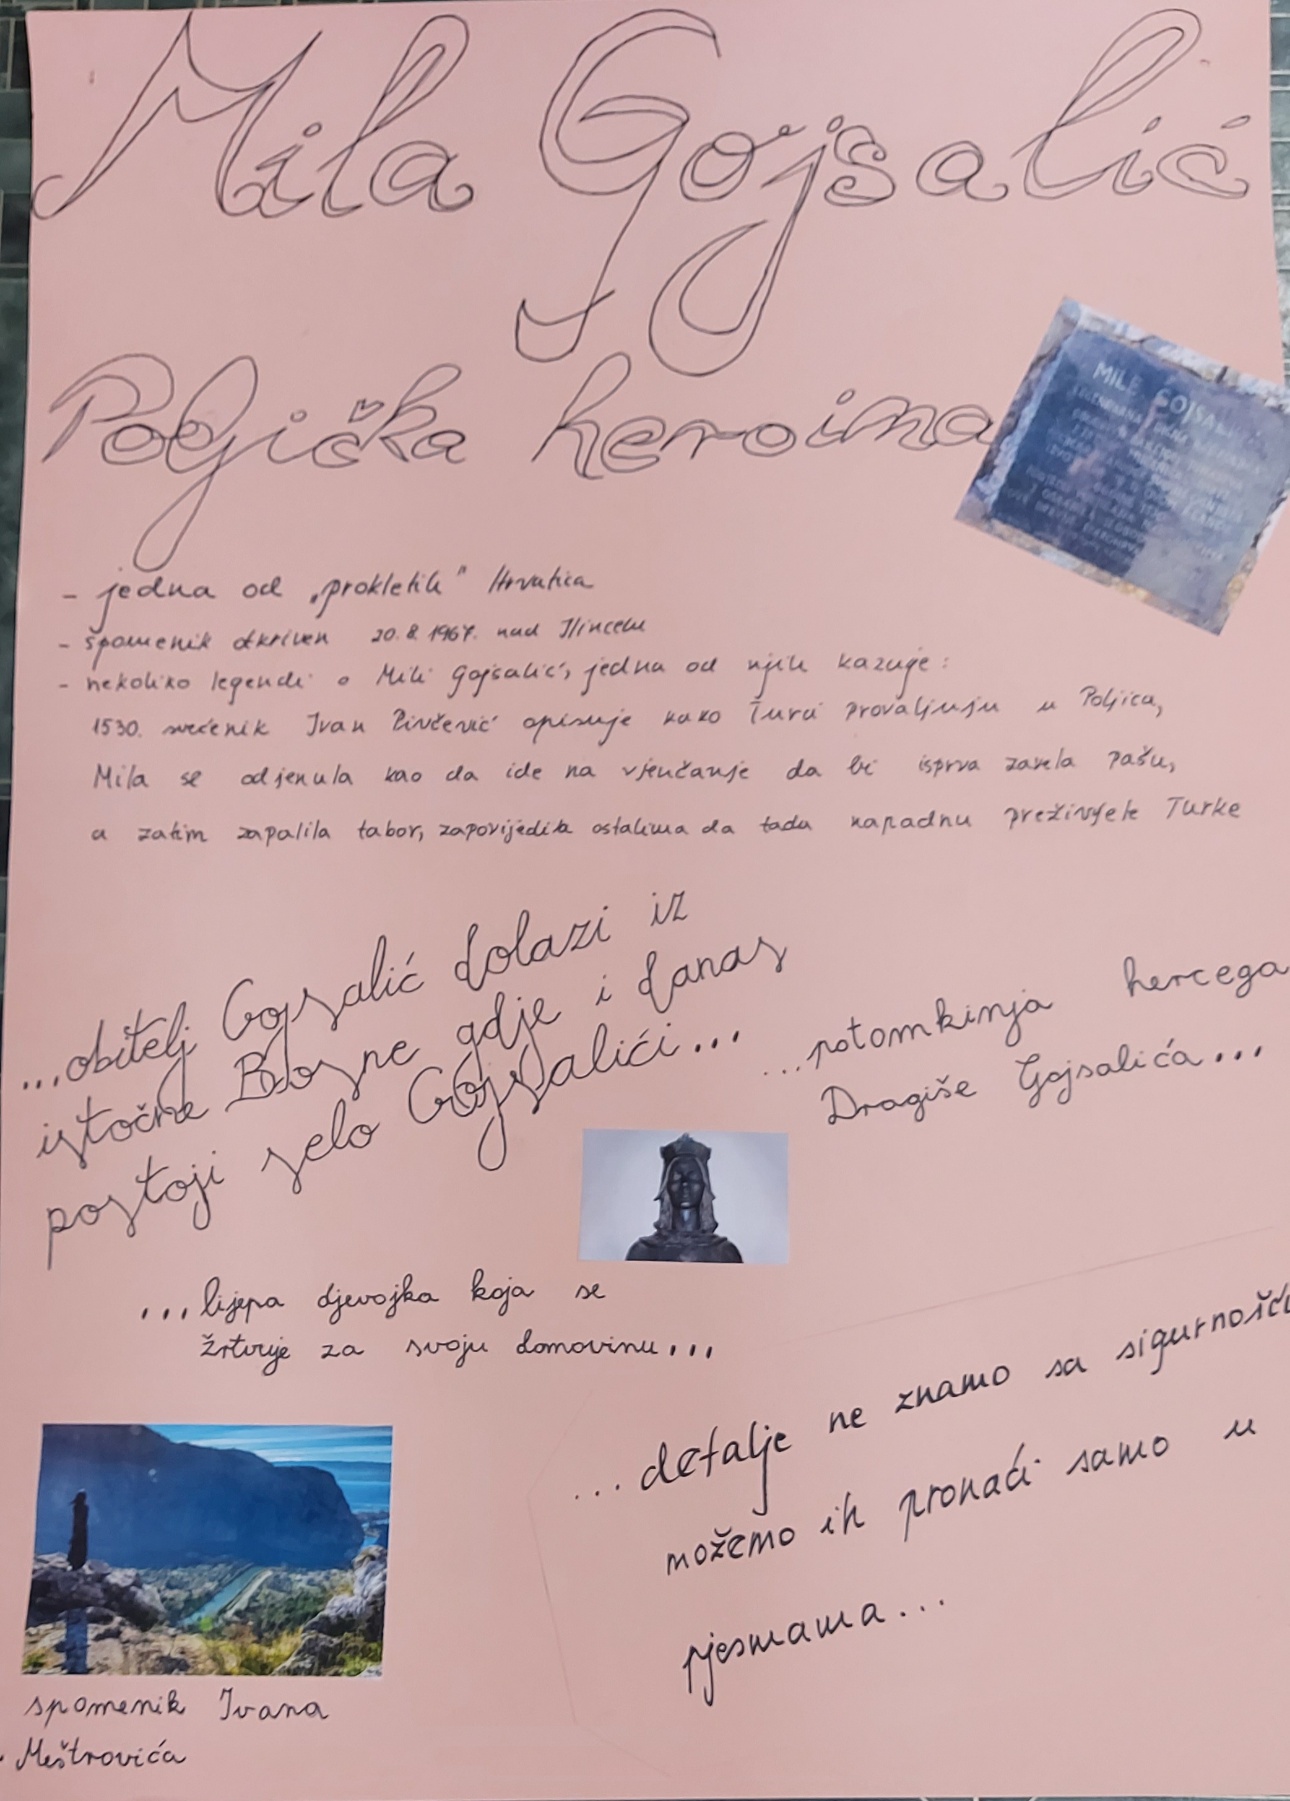 Mila Gojsalić
Poljička heroina
MILE GOJSALIĆ
- jedna od „prokletih" Hrvatica
- spomenik otkriven 20.8.1967. nad Ilincem
- nekoliko legendi o Mili Gojsalić, jedna od njih kazuje:
1530. svećenik Ivan Pivčević opisuje kako Turci provaljuju u Poljica,
Mila se odjenula kao da ide na vjenčanje da bi isprva zavela pašu,
a zatim zapalila tabor, zapovijedila ostalima da tada napadnu preživjele Turke
...obitelj Gojsalić dolazi iz
istočne Bosne gdje i danas
postoji selo Gojsalići...
...potomkinja hercega
Dragiše Gojsalića...
...lijepa djevojka koja se
žrtvuje za svoju domovinu...
...detalje ne znamo sa sigurnošću
možemo ih pronaći samo u
pjesmama...
spomenik Ivana
Meštrovića